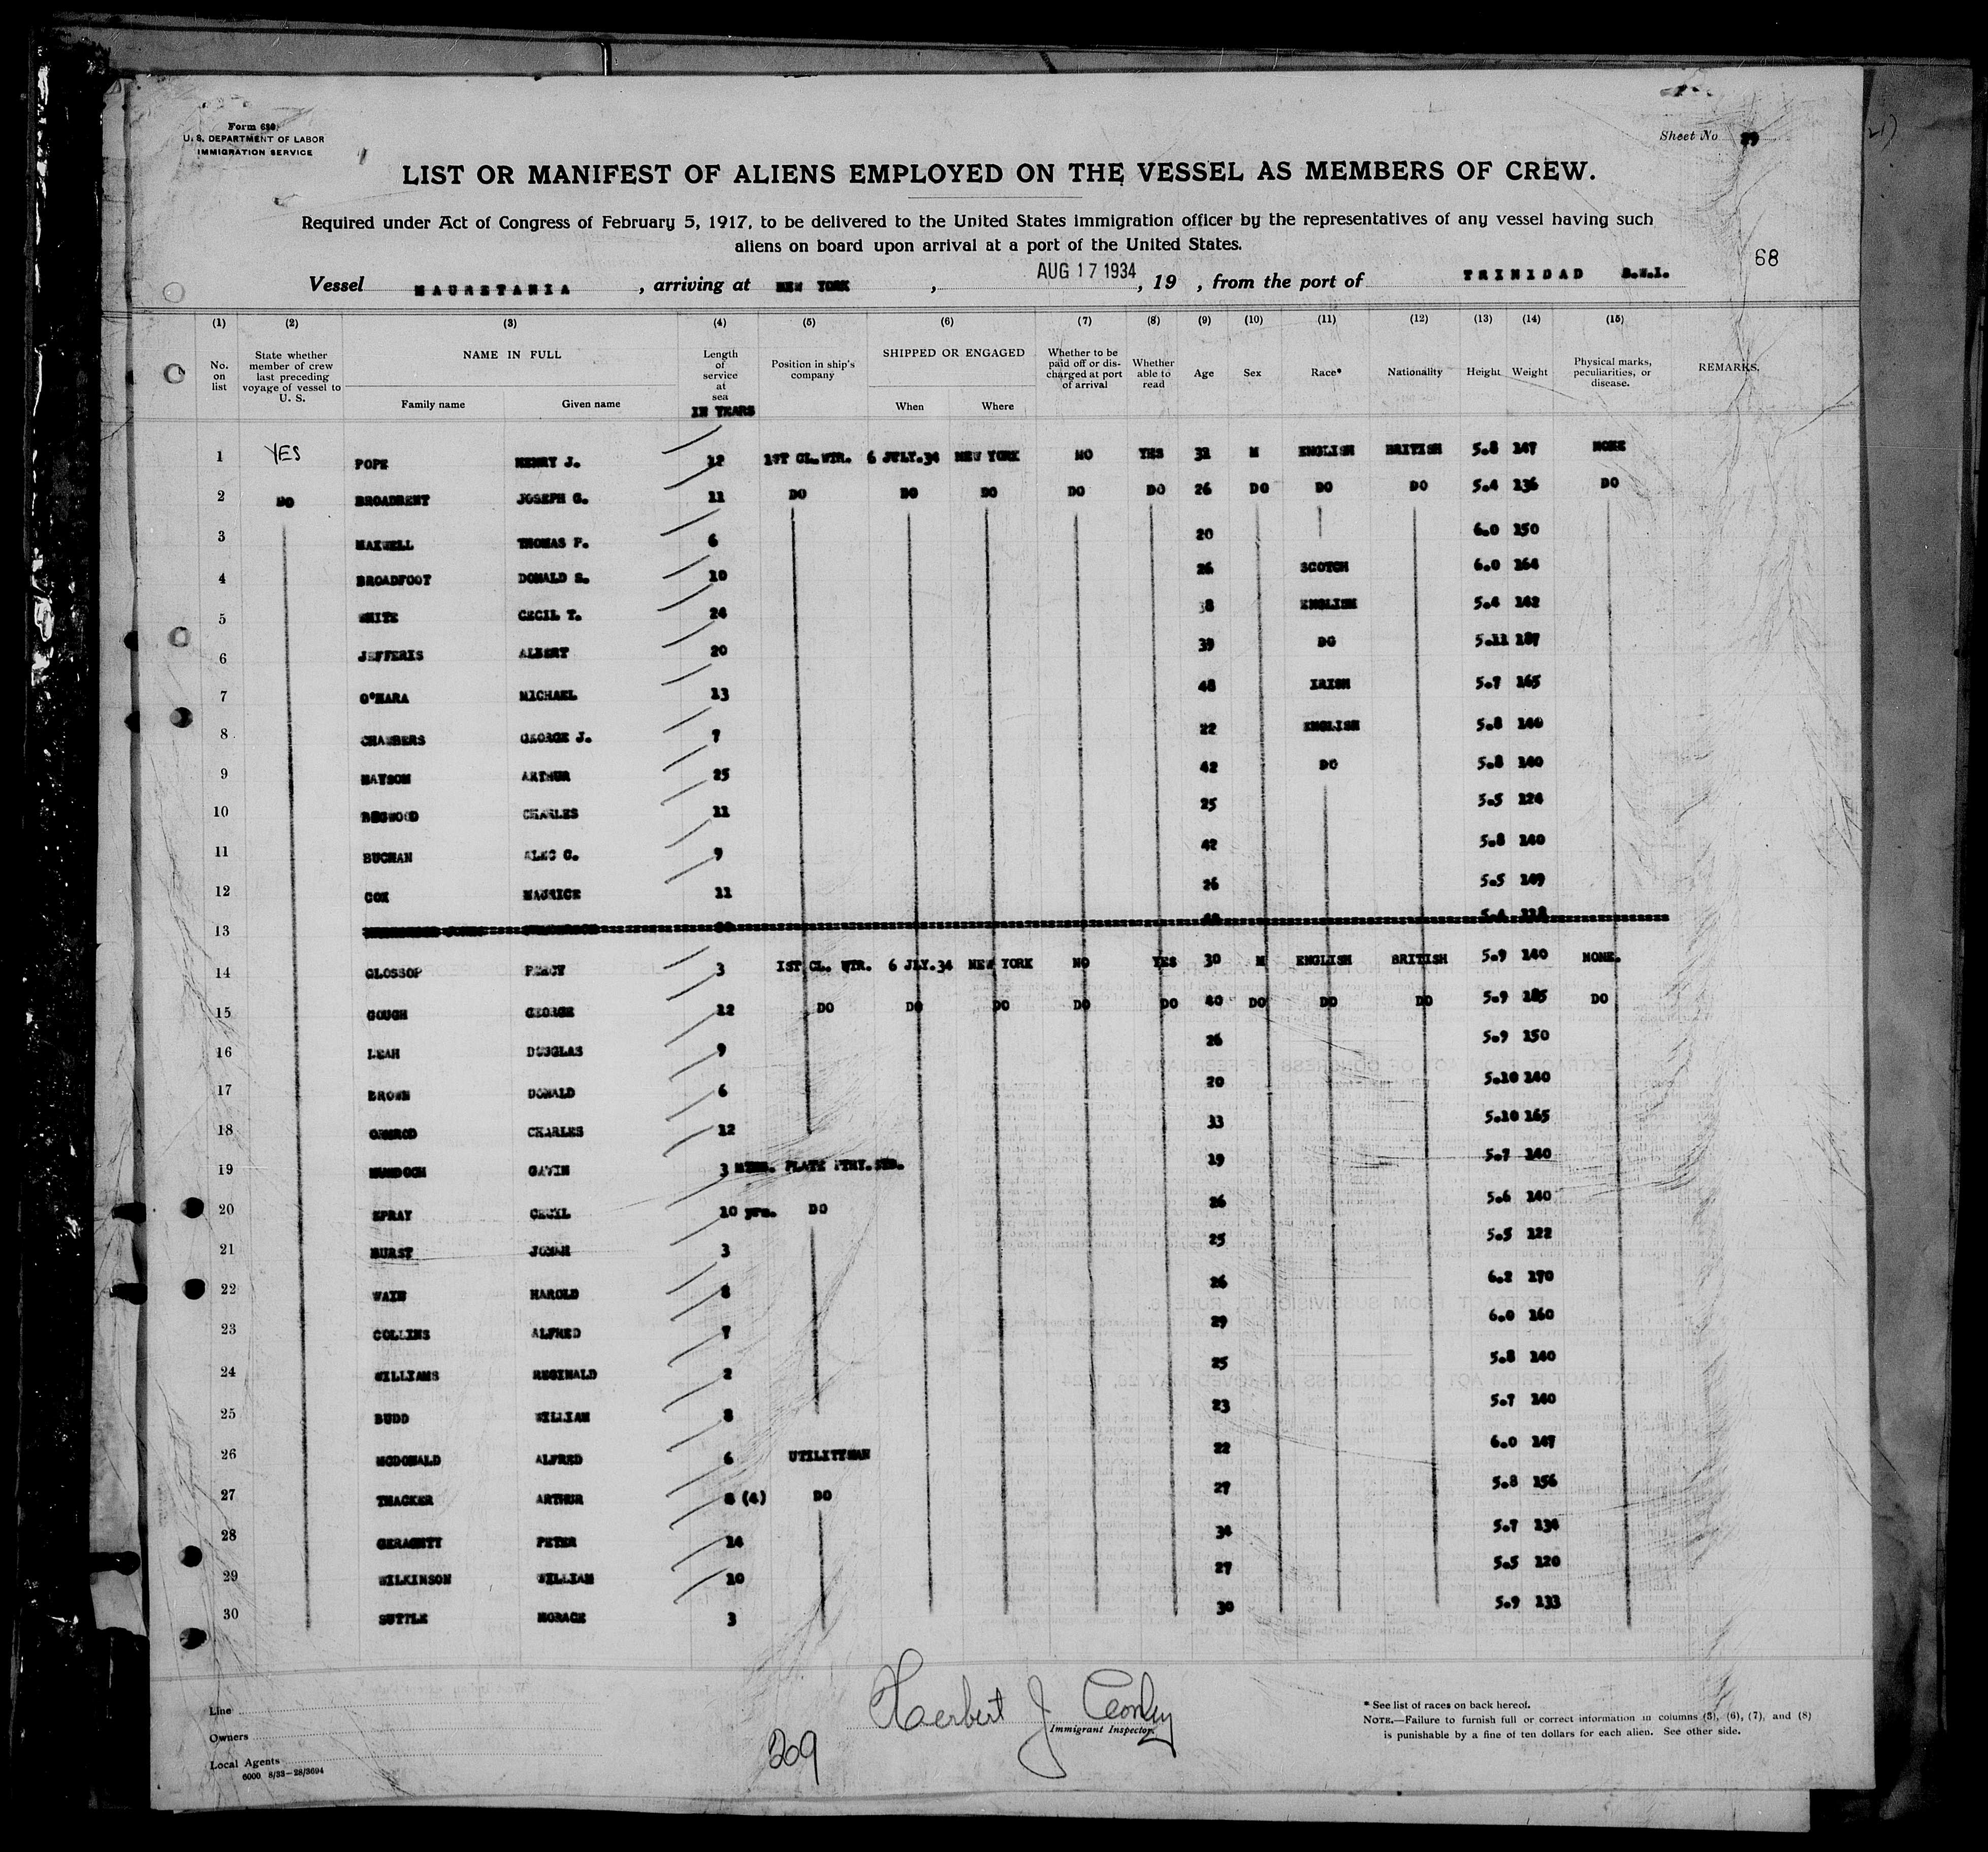 Form 680
U. S. DEPARTMENT OF LABOR
IMMIGRATION SERVICE
Sheet No
LIST OR MANIFEST OF ALIENS EMPLOYED ON THE VESSEL AS MEMBERS OF CREW.
Required under Act of Congress of February 5, 1917, to be delivered to the United States immigration officer by the representatives of any vessel having such
aliens on board upon arrival at a port of the United States.
68
Vessel MAURETANIA , arriving at NEW YORK , AUG 17 1934 , 19 , from the port of TRINIDAD B.W.I.
(1) (2) (3) (4) (5) (6) (7) (8) (9) (10) (11) (12) (13) (14) (15)
No. on list State whether member of crew last preceding voyage of vessel to U. S. NAME IN FULL Length of service at sea IN YEARS Position in ship's company SHIPPED OR ENGAGED Whether to be paid off or discharged at port of arrival Whether able to read Age Sex Race* Nationality Height Weight Physical marks, peculiarities, or disease. REMARKS.
Family name Given name When Where
1 YES POPE HENRY J. 12 1ST CL.WTR. 6 JULY.34 NEW YORK NO YES 31 M ENGLISH BRITISH 5.8 147 NONE
2 DO BROADBENT JOSEPH G. 11 DO DO DO DO DO 26 DO DO DO 5.4 136 DO
3 MAXWELL THOMAS F. 6 20 6.0 150
4 BROADFOOT DONALD S. 10 26 SCOTCH 6.0 164
5 WHITE CECIL T. 24 38 ENGLISH 5.4 142
6 JEFFERIS ALBERT 20 39 DO 5.11 187
7 O'HARA MICHAEL 13 48 IRISH 5.7 165
8 CHAMBERS GEORGE J. 7 22 ENGLISH 5.8 140
9 MAYSON ARTHUR 25 42 DO 5.8 140
10 CHARLES 11 25 5.5 124
11 BUCHAN ALEC G. 9 42 5.8 140
12 COX MAURICE 11 26 5.5 149
13
14 GLOSSOP PERCY 3 1ST CL. WTR. 6 JLY.34 NEW YORK NO YES 30 M ENGLISH BRITISH 5.9 140 NONE.
15 GOUGH GEORGE 12 DO DO DO DO DO 40 DO DO DO 5.9 185 DO
16 LEAH DOUGLAS 9 26 5.9 150
17 BROWN DONALD 6 20 5.10 140
18 ORMROD CHARLES 12 33 5.10 165
19 MURDOCH GAVIN 3 PLATE PTRY. 19 5.7 140
20 SPRAY CECIL 10 yrs. DO 26 5.6 140
21 HURST 3 25 5.5 122
22 HAROLD 8 26 6.2 170
23 COLLINS ALFRED 7 29 6.0 160
24 WILLIAMS REGINALD 2 25 5.8 140
25 BUDD WILLIAM 8 23 5.7 140
26 MCDONALD ALFRED 6 UTILITYMAN 22 6.0 147
27 THACKER ARTHUR 8 (4) DO 27 5.8 156
28 GERAGHTY PETER 14 34 5.7 134
29 WILKINSON WILLIAM 10 27 5.5 120
30 SUTTLE HORACE 3 30 5.9 133
Line
Owners
Local Agents
6000 8/33—28/3694
209
Herbert J Conley
Immigrant Inspector.
* See list of races on back hereof.
NOTE.—Failure to furnish full or correct information in columns (3), (6), (7), and (8)
is punishable by a fine of ten dollars for each alien. See other side.